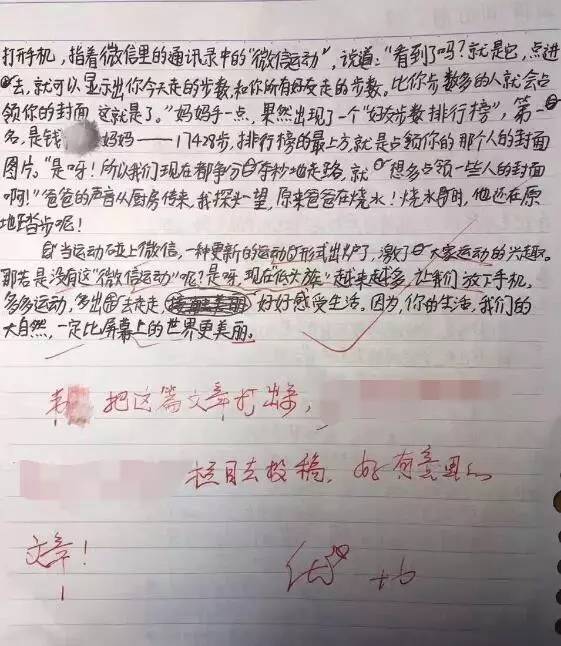 打开手机，指着微信里的通讯录中的“微信运动”，说道：“看到了吗？就是它，点进
去，就可以显示出你今天走的步数和你所有好友走的步数。比你步数多的人就会占
领你的封面，这就是了。”妈妈手一点，果然出现了一个“好友步数排行榜”，第一
名，是钱 妈妈——17428步，排行榜的最上方，就是占领你的那个人的封面
图片。“是呀！所以我们现在都争分夺秒地走路，就想多占领一些人的封面
啊！”爸爸的声音从厨房传来，我探头一望，原来爸爸在烧水！烧水时，他还在原
地踏步呢！
当运动碰上微信，一种更新的运动形式出炉了，激了大家运动的兴趣。
那若是没有这“微信运动”呢？是呀，现在“低头族”越来越多，让我们放下手机，
多多运动，多出去走走，好好感受生活。因为，你的生活，我们的
大自然，一定比屏幕上的世界更美丽。
把这篇文章打出来，
栏目去投稿，好有意思的
文章！
优 +6